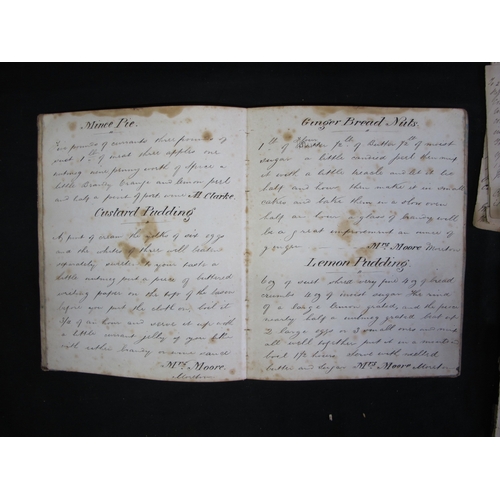 Mince Pie.
Two pounds of currants three pounds of
suet 1 lb of meat three apples one
nutmeg some of Spice a
little Brandy Orange and lemon peel
and half a pint of port wine M Clarke.
Custard Pudding
A pint of cream the yolks of six eggs
and the whites of three well beaten
separately sweeten to your taste a
little nutmeg put a piece of buttered
writing paper on the top of the
before you put the cloth on boil it
3/4 of an hour and serve it up with
a little currant jelly
with either brandy
Mrs Moore.
Moreton
Ginger Bread Nuts.
1 lb of Flour 1/2 lb of Butter 1/2 lb of moist
sugar a little candied peel
it with a little treacle and let it lie
half an hour then make it in
cakes and bake them in a slow oven
half an hour a glass of brandy will
be a great improvement an ounce of
ginger Mrs Moore Moreton
Lemon Pudding
6 oz of suet shred very fine 4 oz of bread
crumbs 4 oz of moist sugar The rind
of a large lemon grated, and the juice
nearly half a nutmeg grated beat up
2 large eggs or 3 small ones and mix
all well together put it in a
boil 1 1/2 hours serve with melted
butter and sugar Mrs Moore Moreton